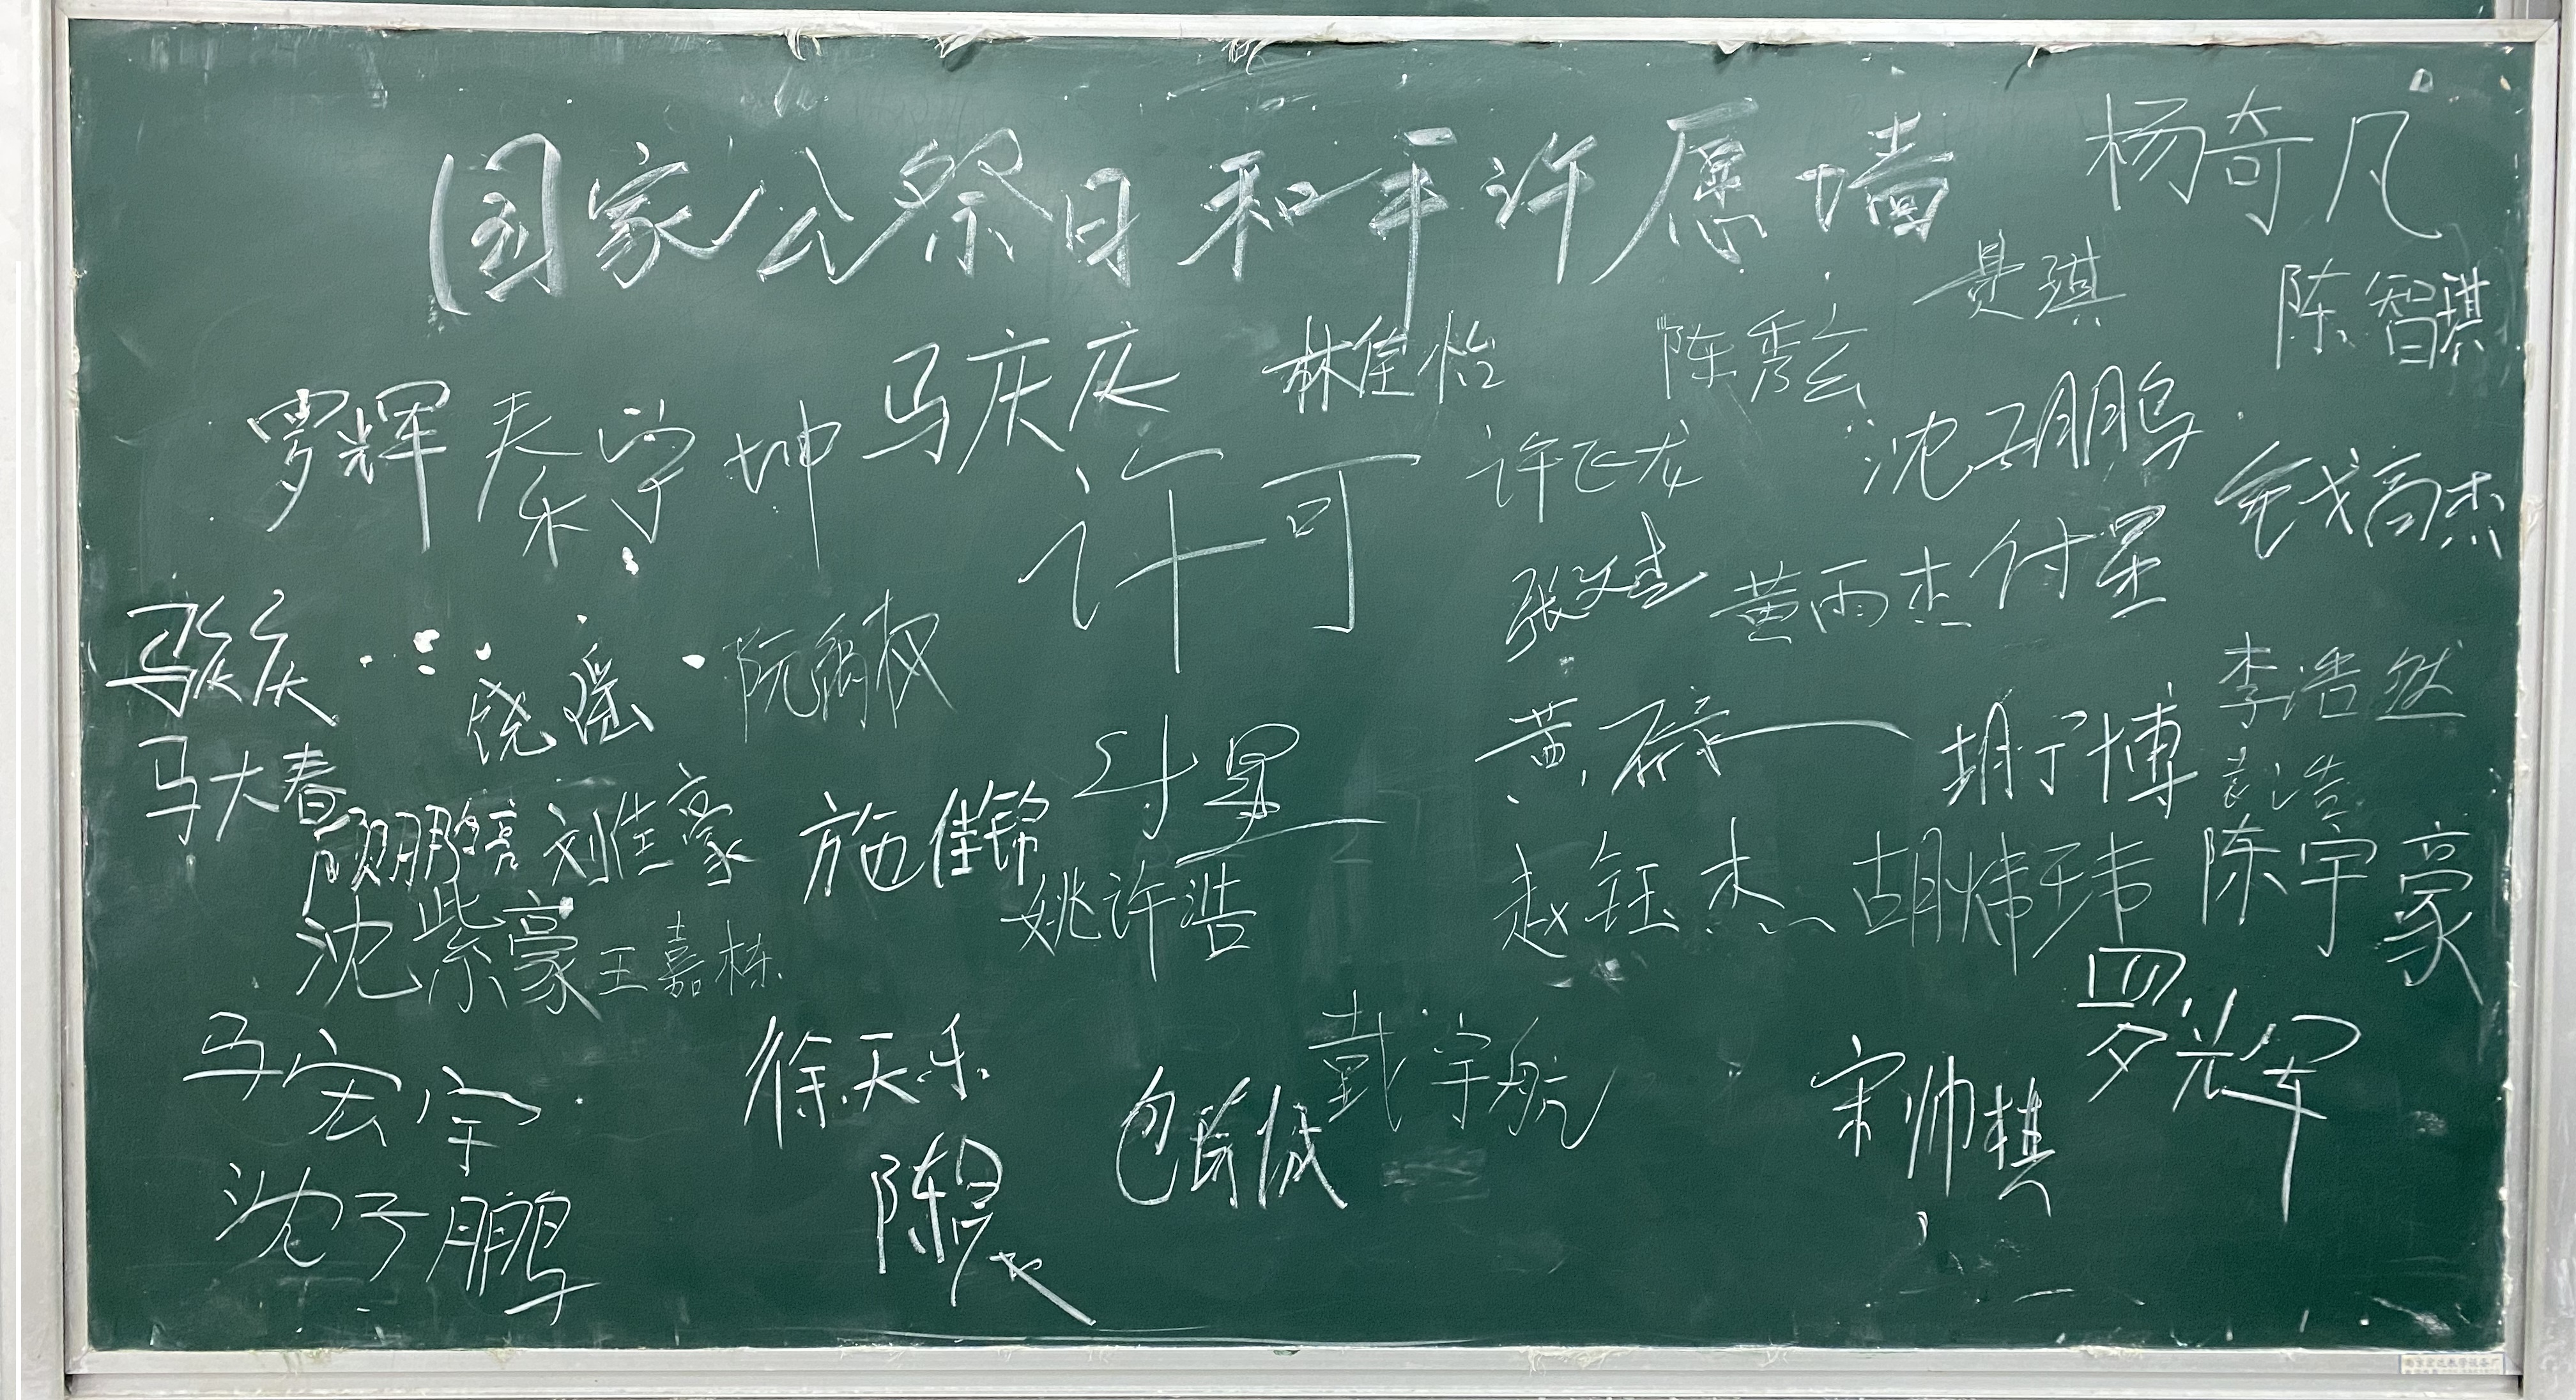 国家公祭日和平许愿墙
杨奇凡
陈智琪
马庆庆
林佳怡
许飞龙
沈子鹏
罗辉
宇坤
许可
钱高杰
付星
黄雨杰
李浩然
马庆庆
阮
马大春
黄
胡宁博
袁浩
顾鹏亮
刘佳豪
施佳铭
付星
姚许浩
赵钰杰
胡炜玮
陈宇豪
沈紫豪
王嘉栋
马宏宇
徐天乐
戴宇航
宋帅棋
罗辉
沈子鹏
陈晨
包